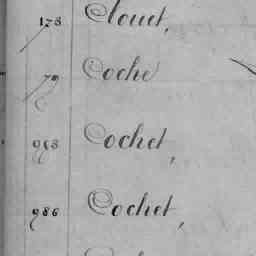 178 Clouet,
79 Coche
968 Cochet,
986 Cochet,